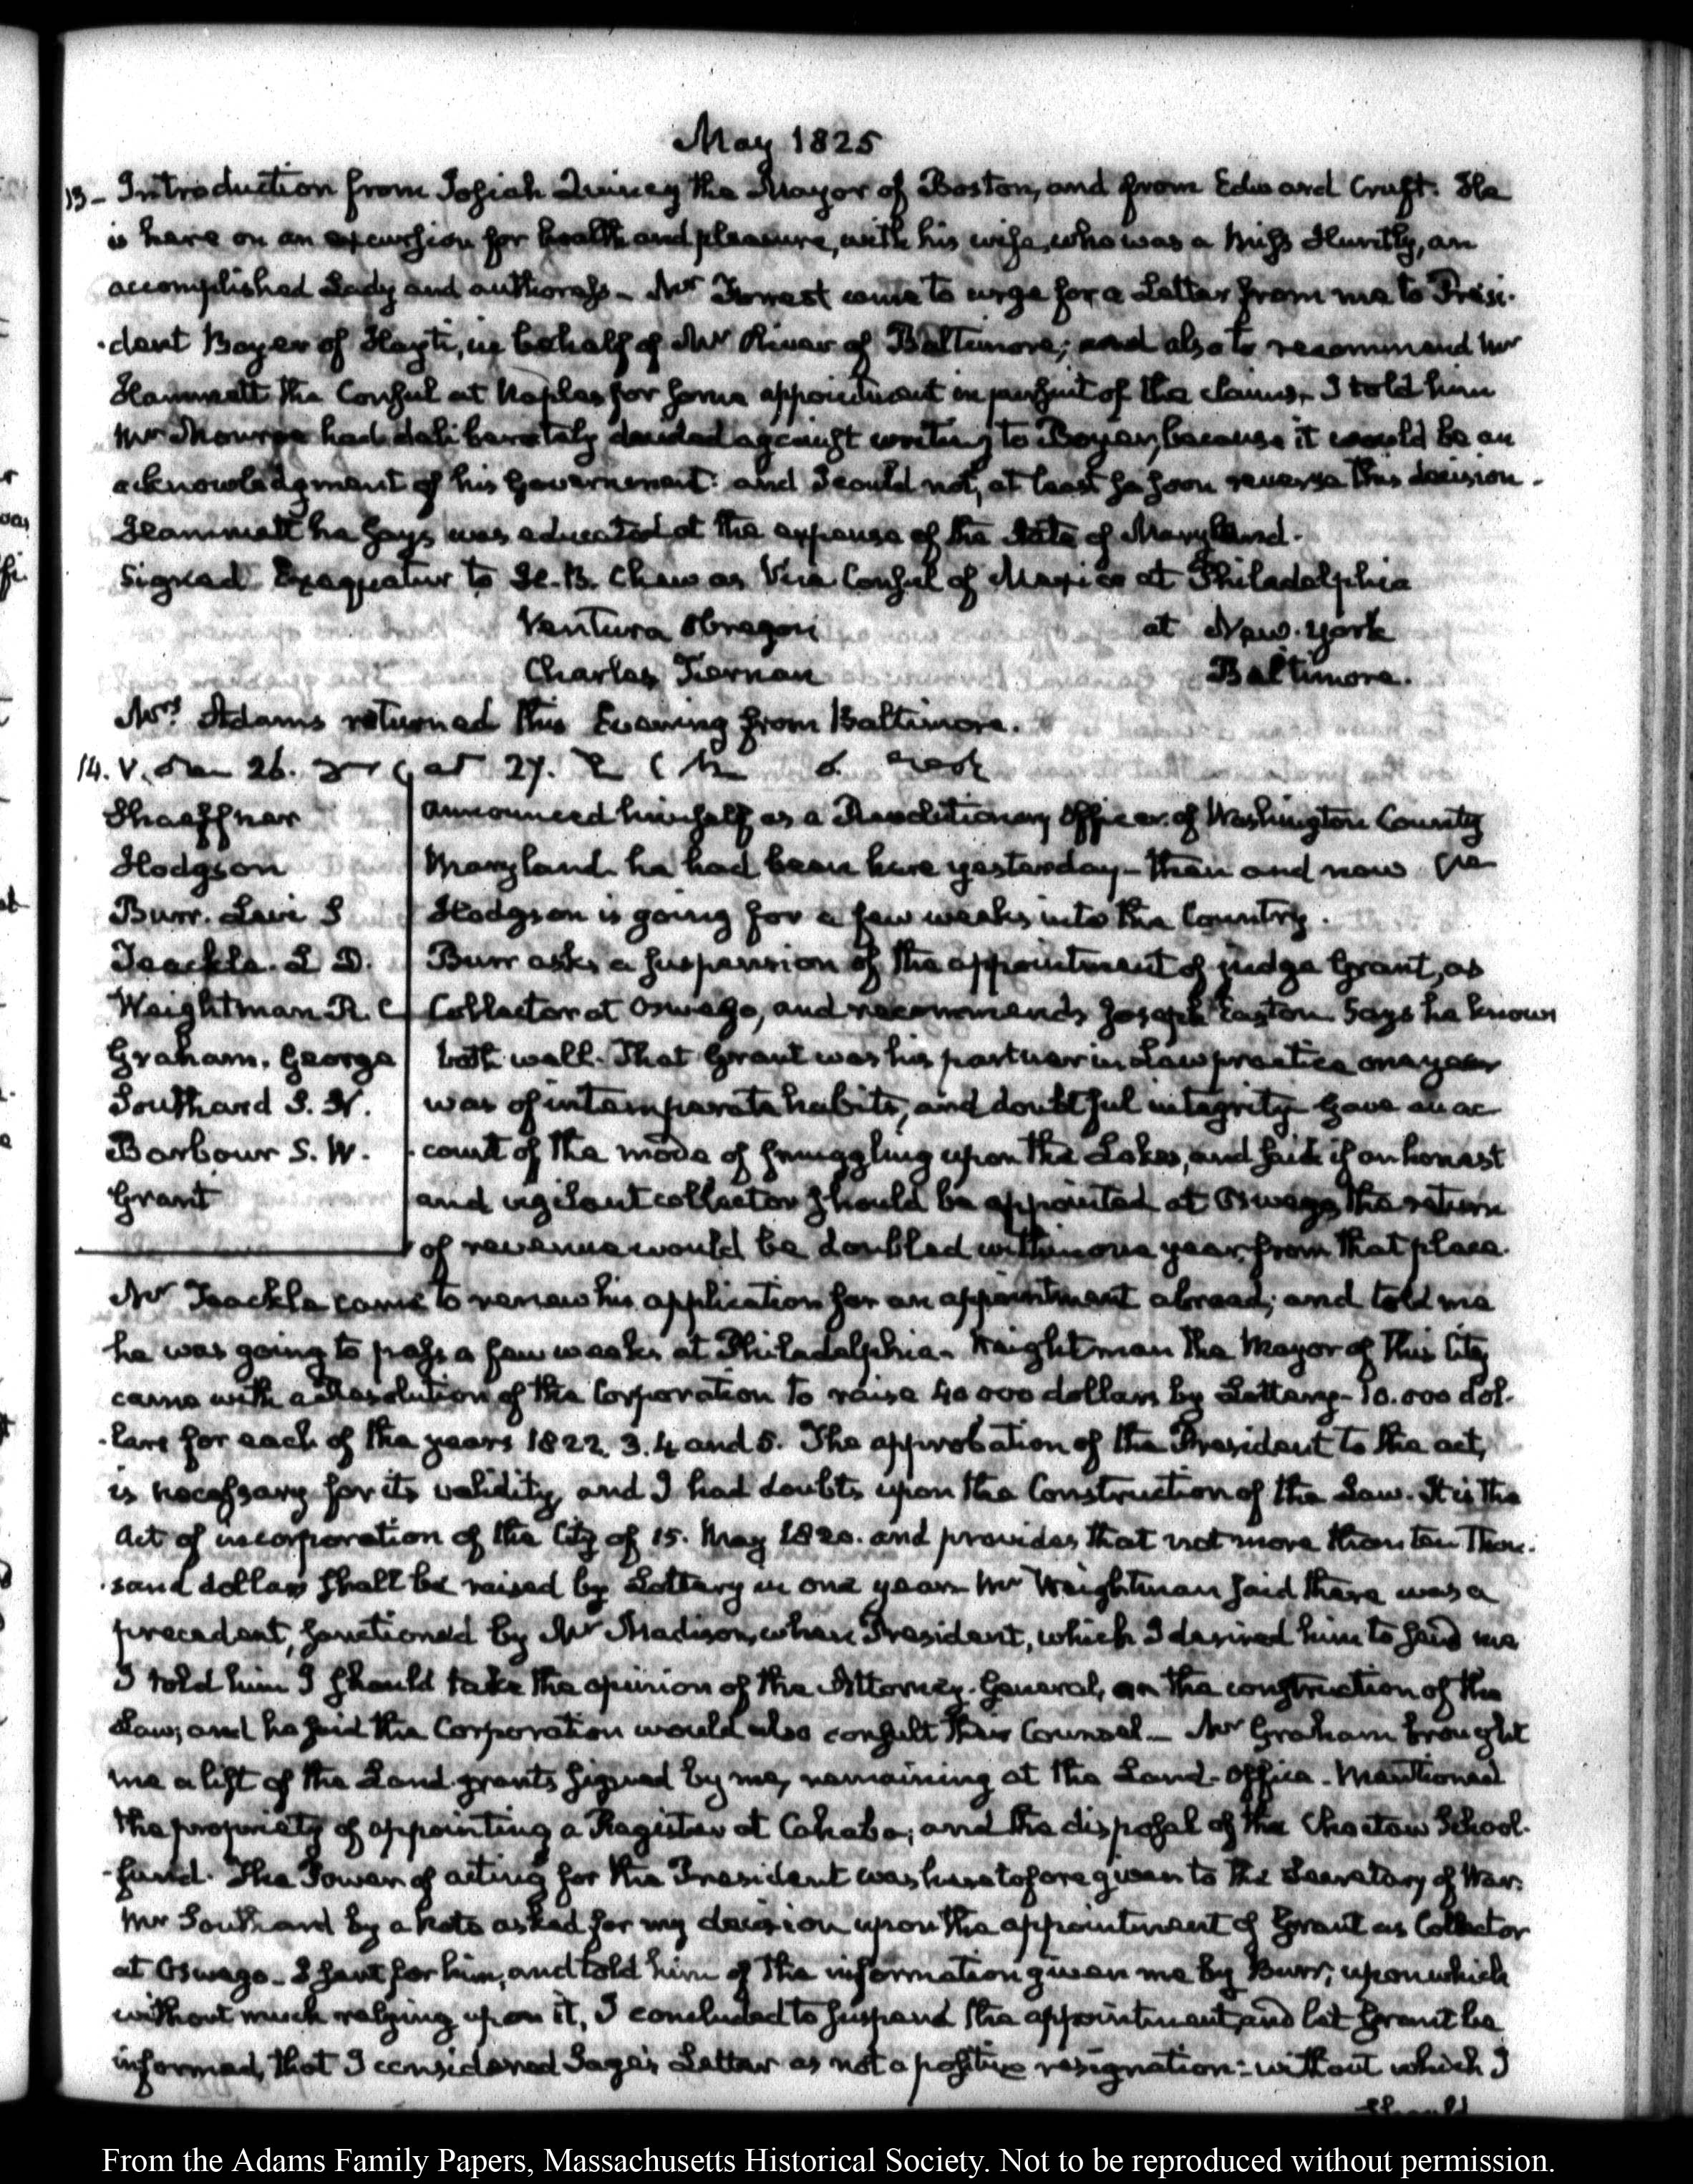 May 1825
13- Introduction from Josiah Quincy the Mayor of Boston, and from Edward Cruft. He
is here on an excursion for health and pleasure, with his wife, who was a Miss Huntly, an
accomplished Lady and authoress- Mr Forrest came to urge for a Letter from me to Presi-
-dent Boyer of Hayti, in behalf of Mr of Baltimore; and also to recommend Mr
Hammett the Consul at Naples for some appointment in pursuit of the claims. I told him
Mr Monroe had deliberately decided against writing to Boyer, because it would be an
acknowledgment of his Government: and I could not, at least so soon reverse this decision.
Hammett he says was educated at the expense of the State of Maryland.
Signed Exequatur to H. B. Chew as Vice Consul of Mexico at Philadelphia
Ventura Obregon at New-York
Charles Tiernan Baltimore.
Mrs Adams returned this Evening from Baltimore.
14. V. 26. at 27.
Shaeffner announced himself as a Revolutionary Officer of Washington County
Hodgson Maryland. he had been here yesterday- then and now
Burr. Levi S Hodgson is going for a few weeks into the Country.
Teackle. L D. Burr asks a suspension of the appointment of judge Grant, as
Weightman R. C Collector at Oswego, and recommends Joseph Easton. Says he knows
Graham. George both well. That Grant was his partner in Law practice one year
Southard S. L. was of intemperate habits, and doubtful integrity- Gave an ac
Barbour S. W. -count of the mode of smuggling upon the Lakes, and said if an honest
Grant and vigilant collector should be appointed at Oswego, the return
of revenue would be doubled within one year from that place.
Mr Teackle came to renew his application for an appointment abroad; and told me
he was going to pass a few weeks at Philadelphia- Weightman the Mayor of this City
came with a Resolution of the Corporation to raise 40 000 dollars by Lottery- 10.000 dol-
-lars for each of the years 1822. 3. 4 and 5. The approbation of the President to the act,
is necessary for its validity, and I had doubts upon the Construction of the Law. It is the
Act of incorporation of the City of 15. May 1820. and provides that not more than ten Thou-
-sand dollars shall be raised by Lottery in one year- Mr Weightman said there was a
precedent, sanctioned by Mr Madison, when President, which I desired him to send me
I told him I should take the opinion of the Attorney-General, on the construction of the
Law; and he said the Corporation would also consult their Counsel- Mr Graham brought
me a list of the Land-grants signed by me, remaining at the Land-Office- Mentioned
the propriety of appointing a Register at Cahaba; and the disposal of the Choctaw School-
-fund. The Power of acting for the President was heretofore given to the Secretary of War.
Mr Southard by a Note asked for my decision upon the appointment of Grant as Collector
at Oswego- I sent for him, and told him of the information given me by Burr; upon which
without much relying upon it, I concluded to suspend the appointment, and let Grant be
informed, that I considered Sage's Letter as not a positive resignation: without which I
should
From the Adams Family Papers, Massachusetts Historical Society. Not to be reproduced without permission.